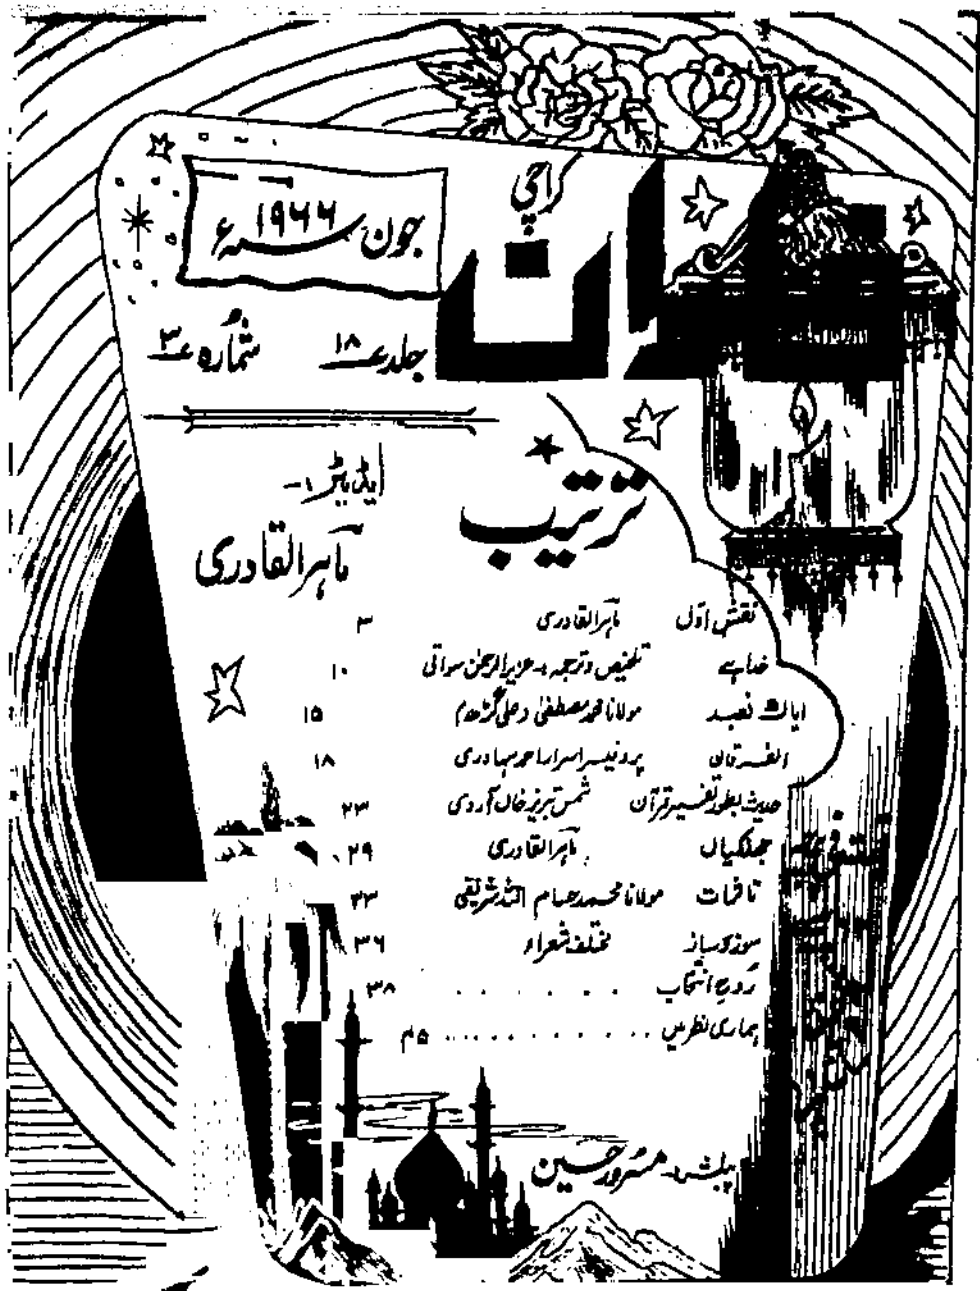 کراچی
جون ۱۹۶۶ سنہء
جلد ۱۸ شمارہ ۳
ایڈیٹر :-
ماہر القادری
ترتیب
نقش اوّل ماہر القادری ۳
خدا ہے تلخیص و ترجمہ :- عزیز الرحمٰن سواتی ۱۰
ایاک نعبد مولانا محمد مصطفیٰ (علی گڑھ) ۱۵
الفرقان پروفیسر اسرار احمد سہاوری ۱۸
حدیث بطور تفسیر قرآن شمس تبریز خاں آروی ۲۳
جھلکیاں ماہر القادری ۲۹
تاثرات مولانا محمد حسام اللہ شریفی ۳۳
سوز و ساز مختلف شعراء ۳۶
روحِ انتخاب . . . . . . ۳۸
ہماری نظر میں . . . . . . . . . . ۴۵
پبلشر :- مسرور حسین